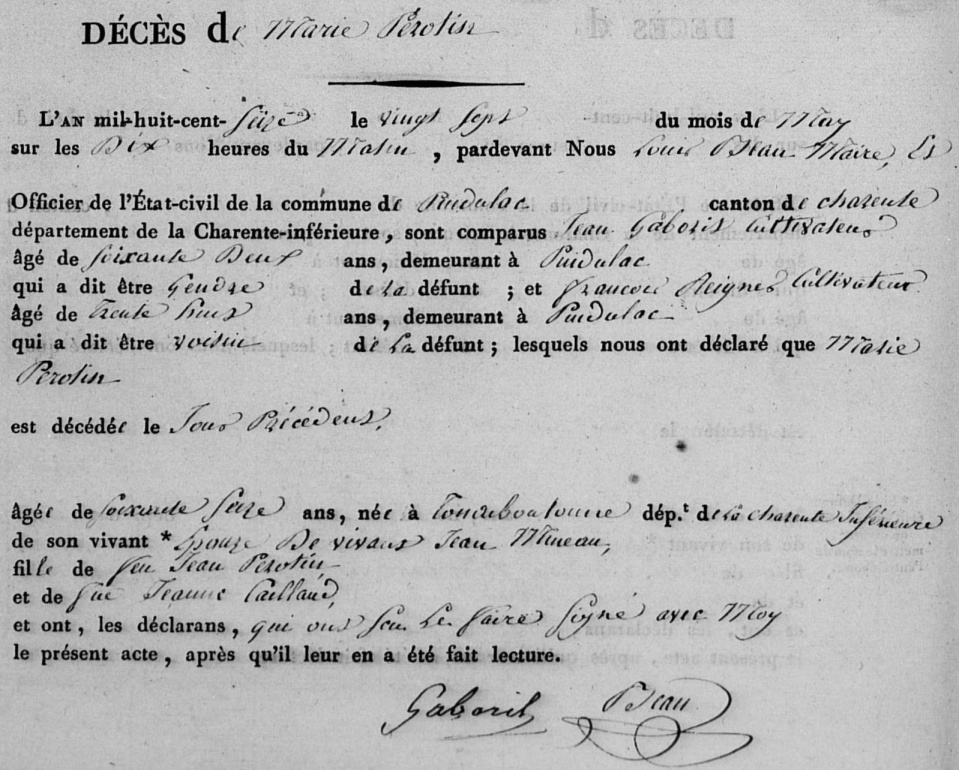 DÉCÈS de Marie Pérotin
L'AN mil-huit-cent-Seize le vingt Sept du mois de May
sur les Dix heures du Matin, pardevant Nous Louis Beau Maire, Et
Officier de l'État-civil de la commune de Puidulac canton de charente
département de la Charente-inférieure, sont comparus Jean Gaborit Cultivateur
âgé de Soixante Deux ans, demeurant à Puidulac
qui a dit être Gendre de La défunt ; et françois Reigner Cultivateur
âgé de Trente ans, demeurant à Puidulac
qui a dit être voisin de La défunt ; lesquels nous ont déclaré que Marie
Pérotin
est décédée le Jour Précédent,
âgée de Soixante Seize ans, née à Tonneboutonne dép.t de La charente Inférieure
de son vivant * Epouze De vivant Jean Mineau,
fille de feu Jean Pérotin
et de füe Jeanne Caillaud,
et ont, les déclarans, qui ont Sçu Le faire Signé avec Moy
le présent acte, après qu'il leur en a été fait lecture.
Gaborit Beau